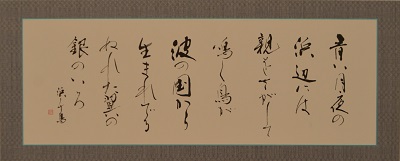 青い月夜の
浜辺には
親をさがして
鳴く鳥が
波の国から
生まれでる
ぬれた翼の
銀のいろ